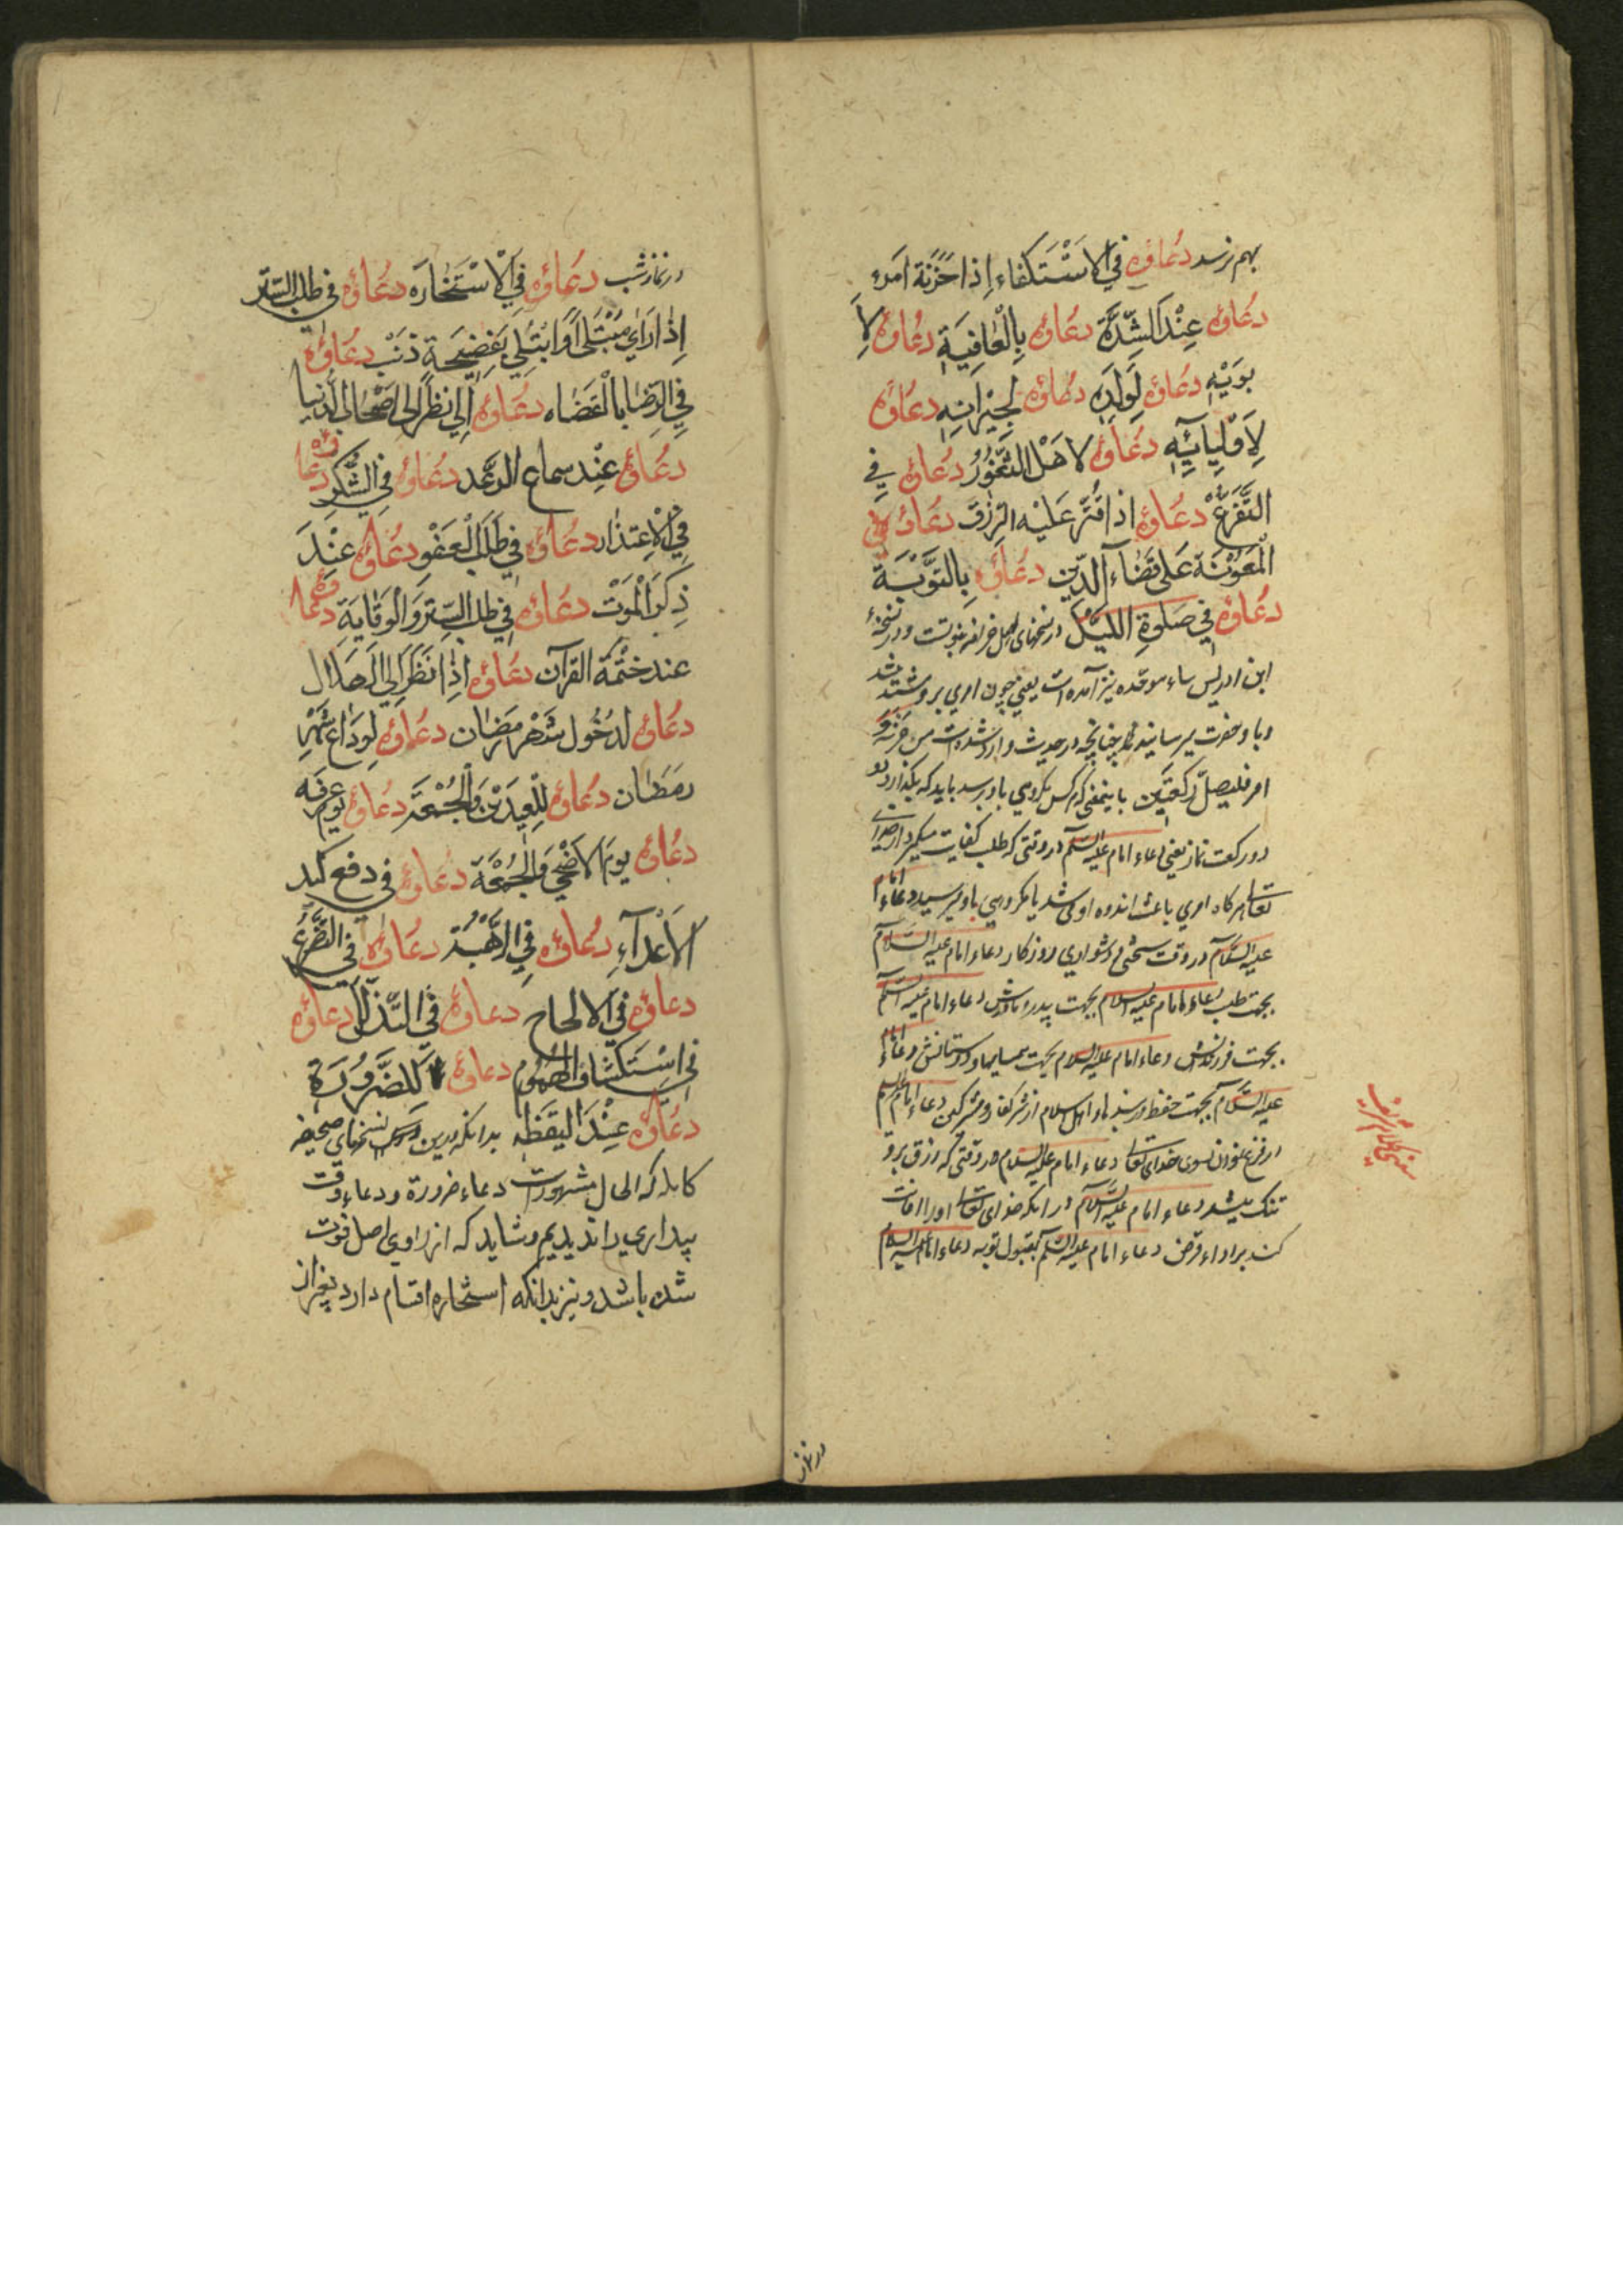 بهم نرسد دعاؤه في الاستكفاء إذا حزنة امره
دعاؤه عند الشدة دعاؤه بالعافية دعاؤه لا
بويه دعاؤه لولده دعاؤه لجيرانه دعاؤه
لاوليائه دعاؤه لاهل الثغور دعاؤه في
التفزع دعاؤه اذا قتر عليه الرزق دعاؤه في
المعونة على قضاء الدين دعاؤه بالتوبة
دعاؤه في صلوة الليل در نسخهای اصل و در نسخهٔ
ابن ادریس باء موحده نیز آمده است یعنی چون امری برو شدید شد
چنانچه در حدیث وارد شده است من حزنه
امر فلیصل رکعتین باینمعنی که هر کس مکروهی باو برسد باید که بگذارد
دو رکعت نماز یعنی دعاء امام علیه السلام در وقتی که طلب کفایت میکرد از خدای
تعالی هر کاه امری باعث اندوه او می شد یا مکروهی باو میرسید دعاء امام
علیه السلام در وقت سختی و دشواری روزکار دعاء امام علیه السلام
بجهت طلب دعاء امام علیه السلام بجهت پدر و مادرش دعاء امام علیه السلام
بجهت فرزندش دعاء امام علیه السلام بجهت همسایها و دوستانش دعاء امام
علیه السلام بجهت حفظ اهل اسلام از شر کفار و مشرکین دعاء امام علیه السلام
بسوی خدای تعالی دعاء امام علیه السلام در وقتی که رزق برو
تنک میشد دعاء امام علیه السلام در آنکه خدای تعالی او را اعانت
کند بر اداء قرض دعاء امام علیه السلام بقبول توبه دعاء امام علیه السلام
در نماز
در نماز شب دعاؤه في الاستخاره دعاؤه في طلب الستر
إذا رأي مبتلى أو ابتلي بفضيحة ذنب دعاؤه
في الرضا بالقضاه دعاؤه إلي نظر الى اصحاب الدنيا
دعاؤه عند سماع الرعد دعاؤه في الشكر دعاؤه
في الاعتذار دعاؤه في طلب العفو دعاؤه عند
ذكر الموت دعاؤه في طلب الستر والوقاية دعاؤه
عند ختمة القرآن دعاؤه اذا نظر إلى الهلال
دعاؤه لدخول شهر رمضان دعاؤه لوداع شهر
رمضان دعاؤه للعيدين والجمعة دعاؤه يوم عرفه
دعاؤه يوم الاضحي والجمعة دعاؤه في دفع كيد
الاعداء دعاؤه في الرهبة دعاؤه في التضرع
دعاؤه في الالحاح دعاؤه في التذلل دعاؤه
في استكشاف الهموم دعاؤه للضرورة
دعاؤه عند اليقظه بدانکه درین نسخهای صحیفه
کامله که الحال مشهورات دعاء ضرورة و دعاء وقت
بیداری را ندیدیم و شاید که از راوی اصل فوت
شده باشد و نیز بدانکه استخاره اقسام دارد بغیر از